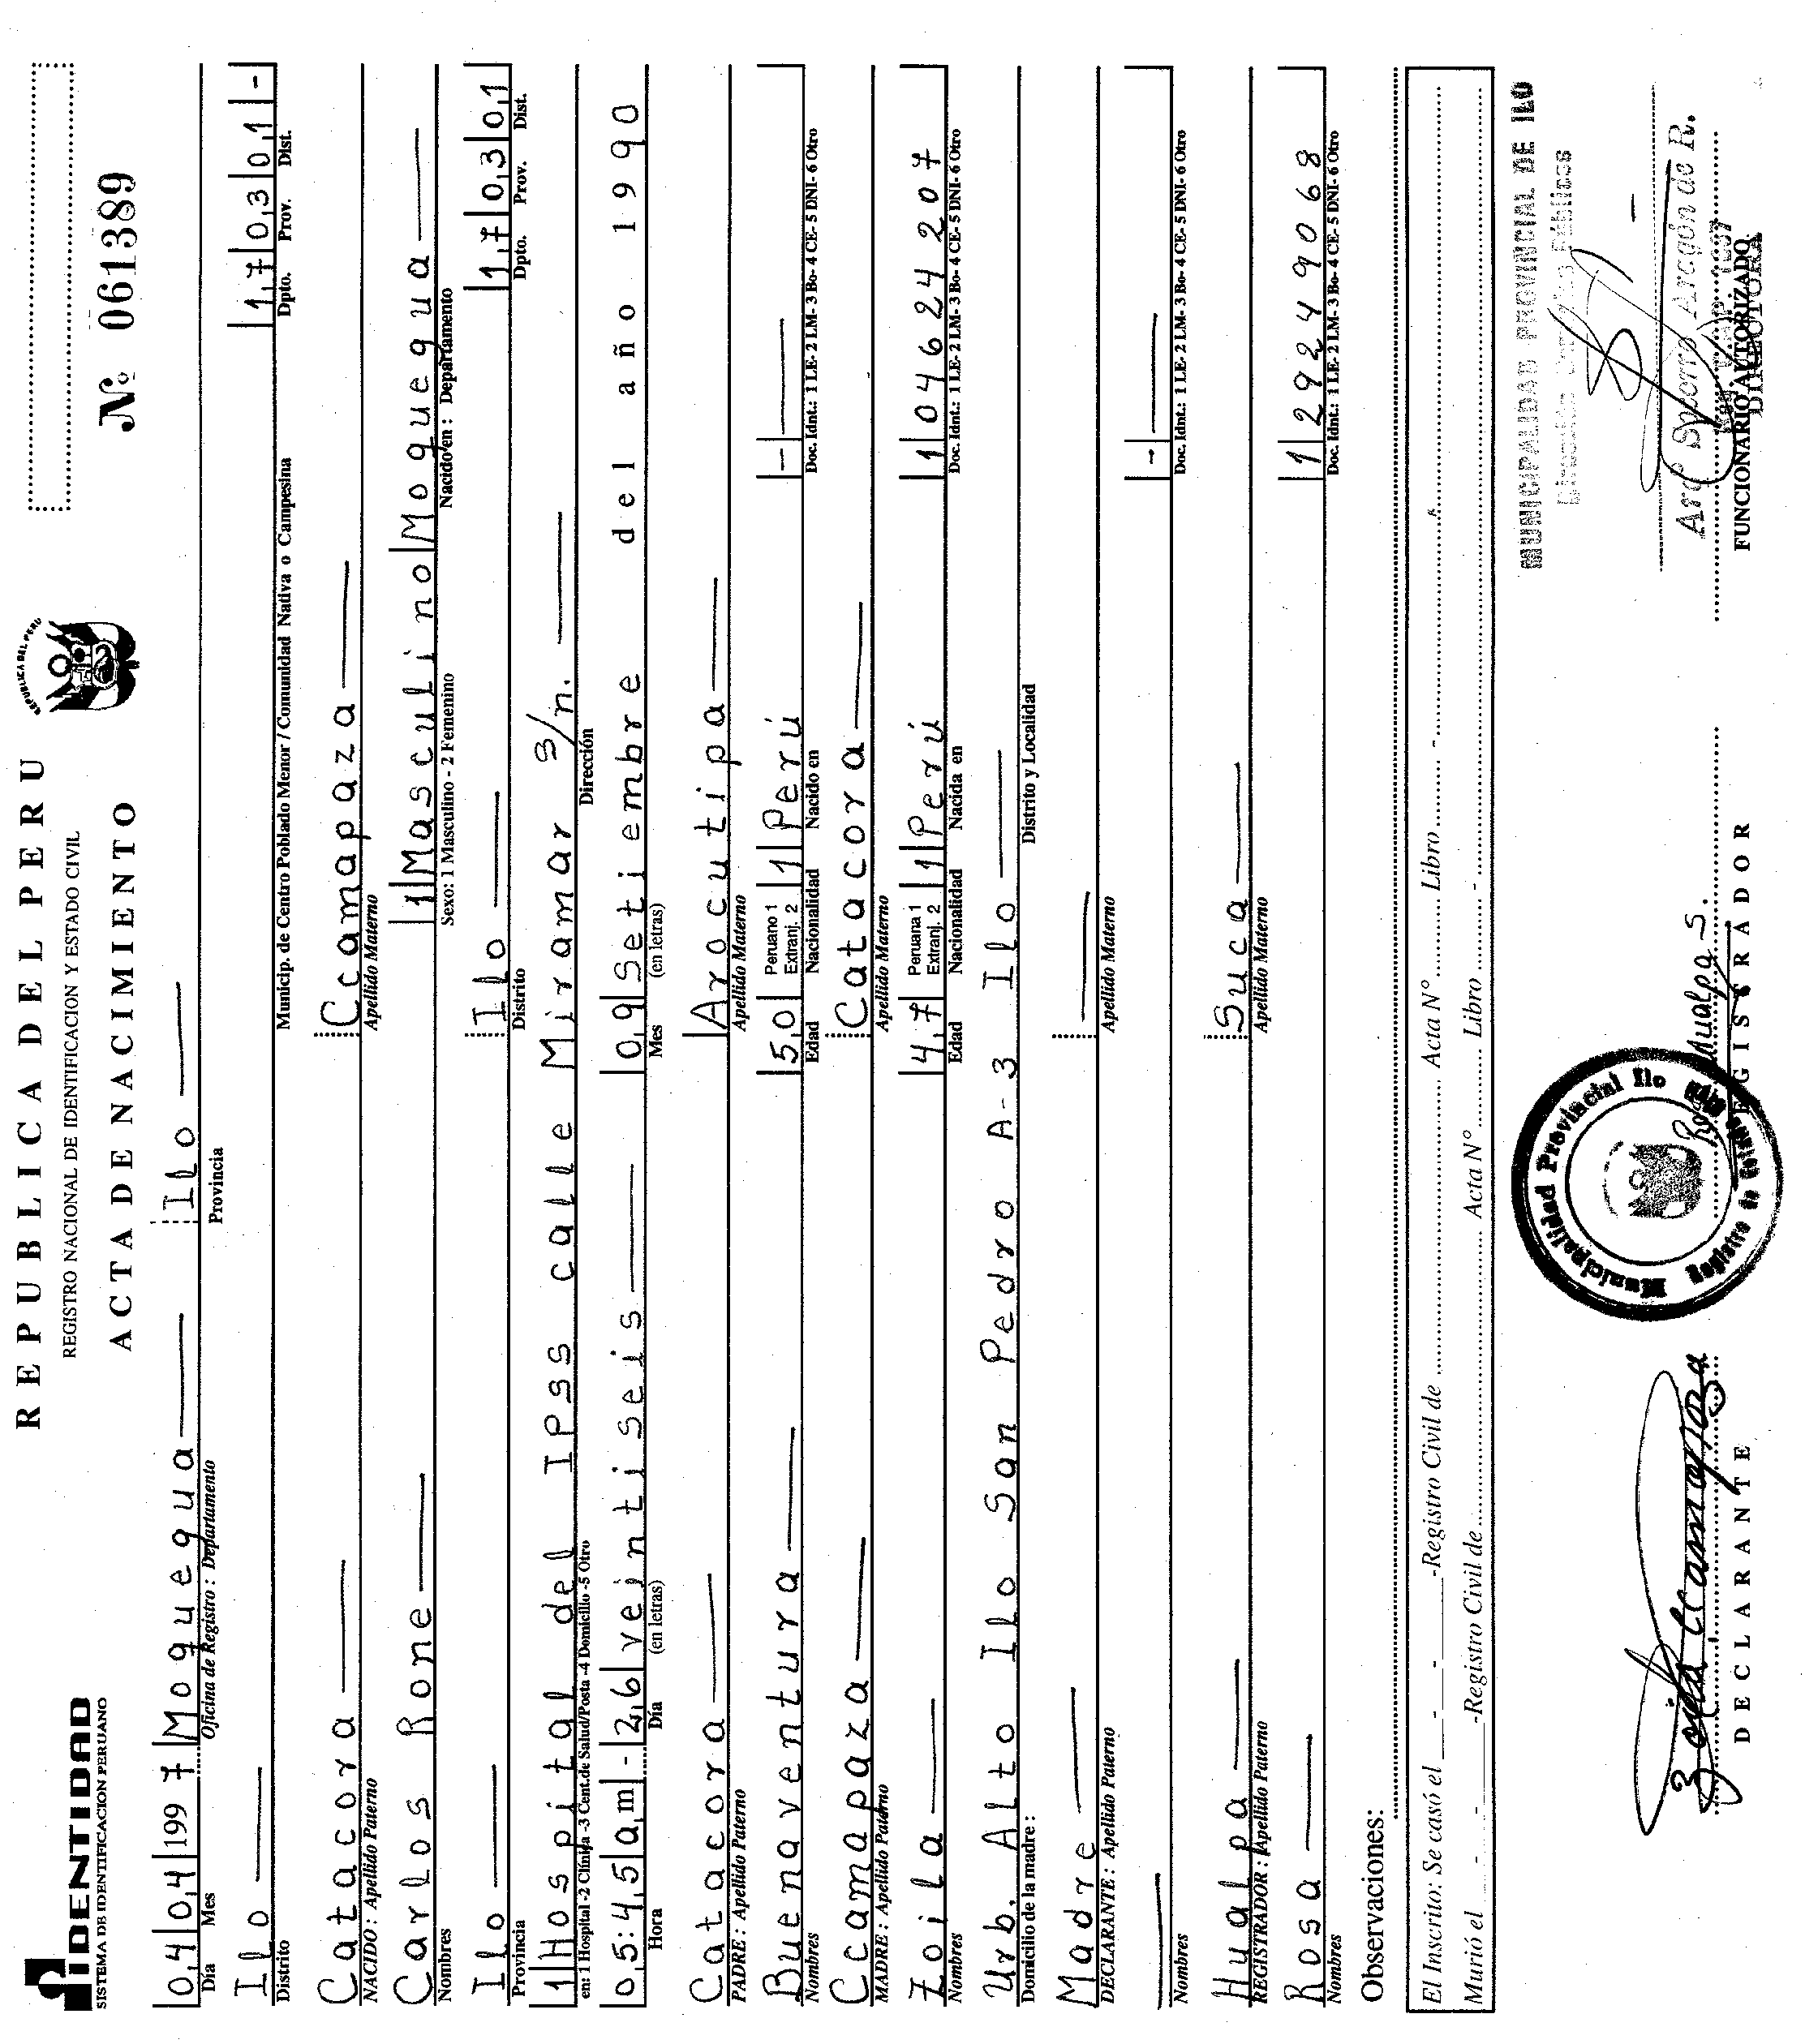 IDENTIDAD
SISTEMA DE IDENTIFICACION PERUANO
REPUBLICA DEL PERU
REPUBLICA DEL PERU
REGISTRO NACIONAL DE IDENTIFICACION Y ESTADO CIVIL
ACTA DE NACIMIENTO
Nº 061389
04 04 1997 Moquegua Ilo
Día Mes Oficina de Registro : Departamento Provincia
Ilo 17 03 01 -
Distrito Municip. de Centro Poblado Menor / Comunidad Nativa o Campesina Dpto. Prov. Dist.
Catacora Ccamapaza
NACIDO : Apellido Paterno Apellido Materno
Carlos Rone 1 Masculino Moquegua
Nombres Sexo: 1 Masculino - 2 Femenino Nacido en : Departamento
Ilo Ilo 17 03 01
Provincia Distrito Dpto. Prov. Dist.
1 Hospital del IPSS calle Miramar S/n.
en: 1 Hospital -2 Clínica -3 Cent.de Salud/Posta -4 Domicilio -5 Otro Dirección
05:45 am - 26 veintiseis 09 Setiembre del año 1990
Hora Día (en letras) Mes (en letras)
Catacora Arocutipa
PADRE : Apellido Paterno Apellido Materno
Buenaventura 50 Peruano 1 Extranj. 2 1 Perú - 
Nombres Edad Nacionalidad Nacido en Doc. Idnt.: 1 LE- 2 LM- 3 Bo- 4 CE- 5 DNI- 6 Otro
Ccamapaza Catacora
MADRE : Apellido Paterno Apellido Materno
Zoila 47 Peruana 1 Extranj. 2 1 Perú 1 04624207
Nombres Edad Nacionalidad Nacida en Doc. Idnt.: 1 LE- 2 LM- 3 Bo- 4 CE- 5 DNI- 6 Otro
Urb. Alto Ilo San Pedro A-3 Ilo
Domicilio de la madre : Distrito y Localidad
Madre
DECLARANTE : Apellido Paterno Apellido Materno
-
Nombres Doc. Idnt.: 1 LE- 2 LM- 3 Bo- 4 CE- 5 DNI- 6 Otro
Hualpa Suca
REGISTRADOR : Apellido Paterno Apellido Materno
Rosa 1 29249068
Nombres Doc. Idnt.: 1 LE- 2 LM- 3 Bo- 4 CE- 5 DNI- 6 Otro
Observaciones:
El Inscrito: Se casó el - - -Registro Civil de Acta N° Libro -
Murió el - - -Registro Civil de Acta N° Libro -
MUNICIPALIDAD PROVINCIAL DE ILO
Municipalidad Provincial Ilo
Registro de Estado
Zoila Ccamapaza
Rosa Hualpa S.
Aragón de R.
DIRECTORA
DECLARANTE
REGISTRADOR
FUNCIONARIO AUTORIZADO